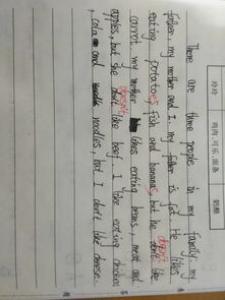 鸡肉,可乐,面条
奶酪
There are three peoples in my family. my
father, my mother and I. My father is fat. He likes
doesn't
eating potatoes, fish and bananas, but he dont like
carrot. my mother likes eating beans, meat and
doesn't
apples, but she dont like beef. I like eating chicken
, cola and noodles, but I don't like cheese.